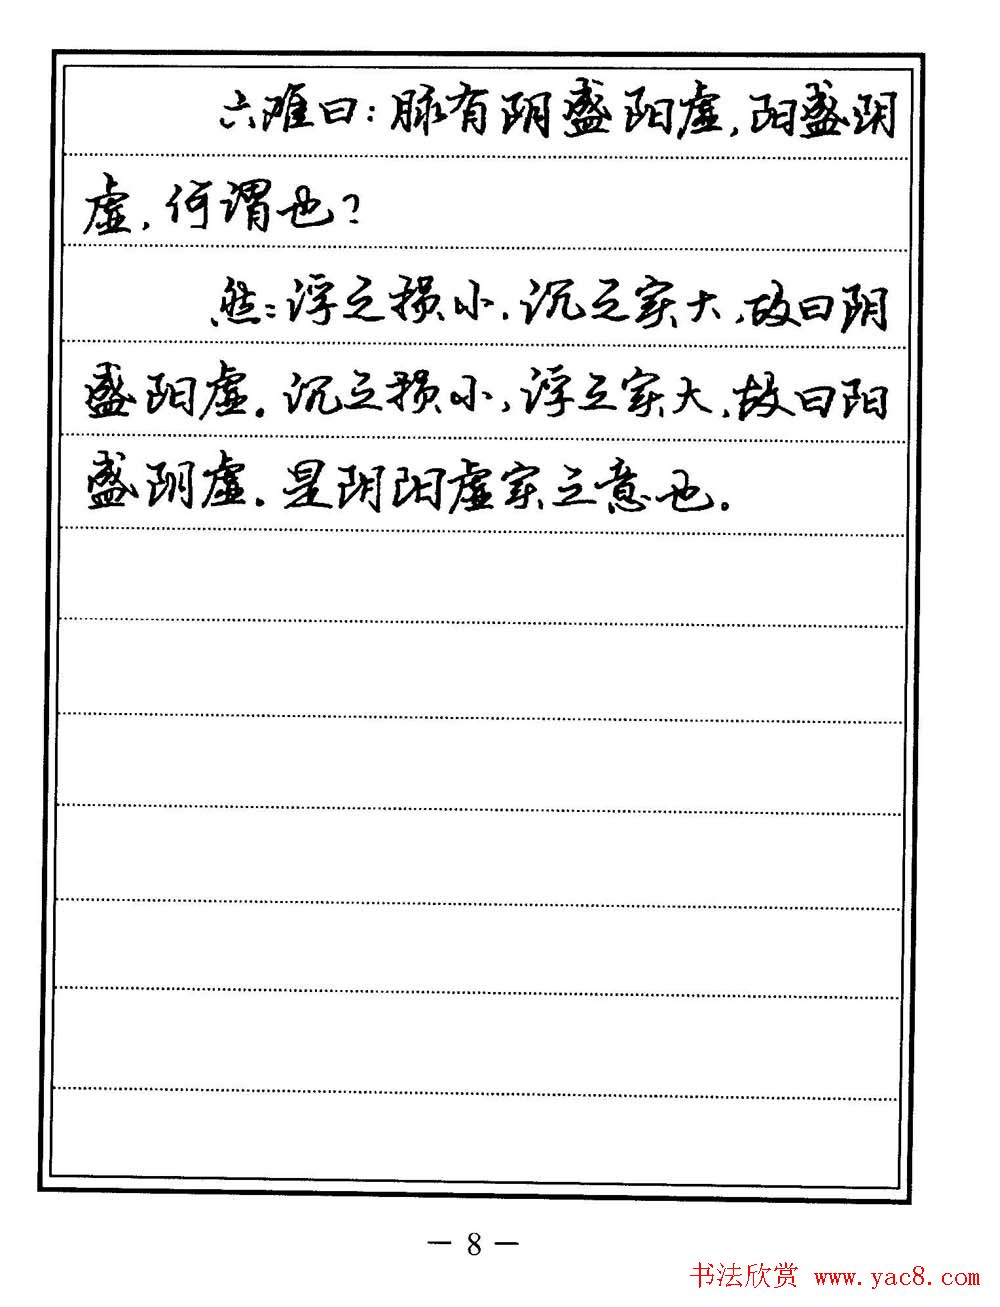 六难曰：脉有阴盛阳虚，阳盛阴
虚，何谓也？
然：浮之损小，沉之实大，故曰阴
盛阳虚。沉之损小，浮之实大，故曰阳
盛阴虚。是阴阳虚实之意也。
— 8 —
书法欣赏 www.yac8.com